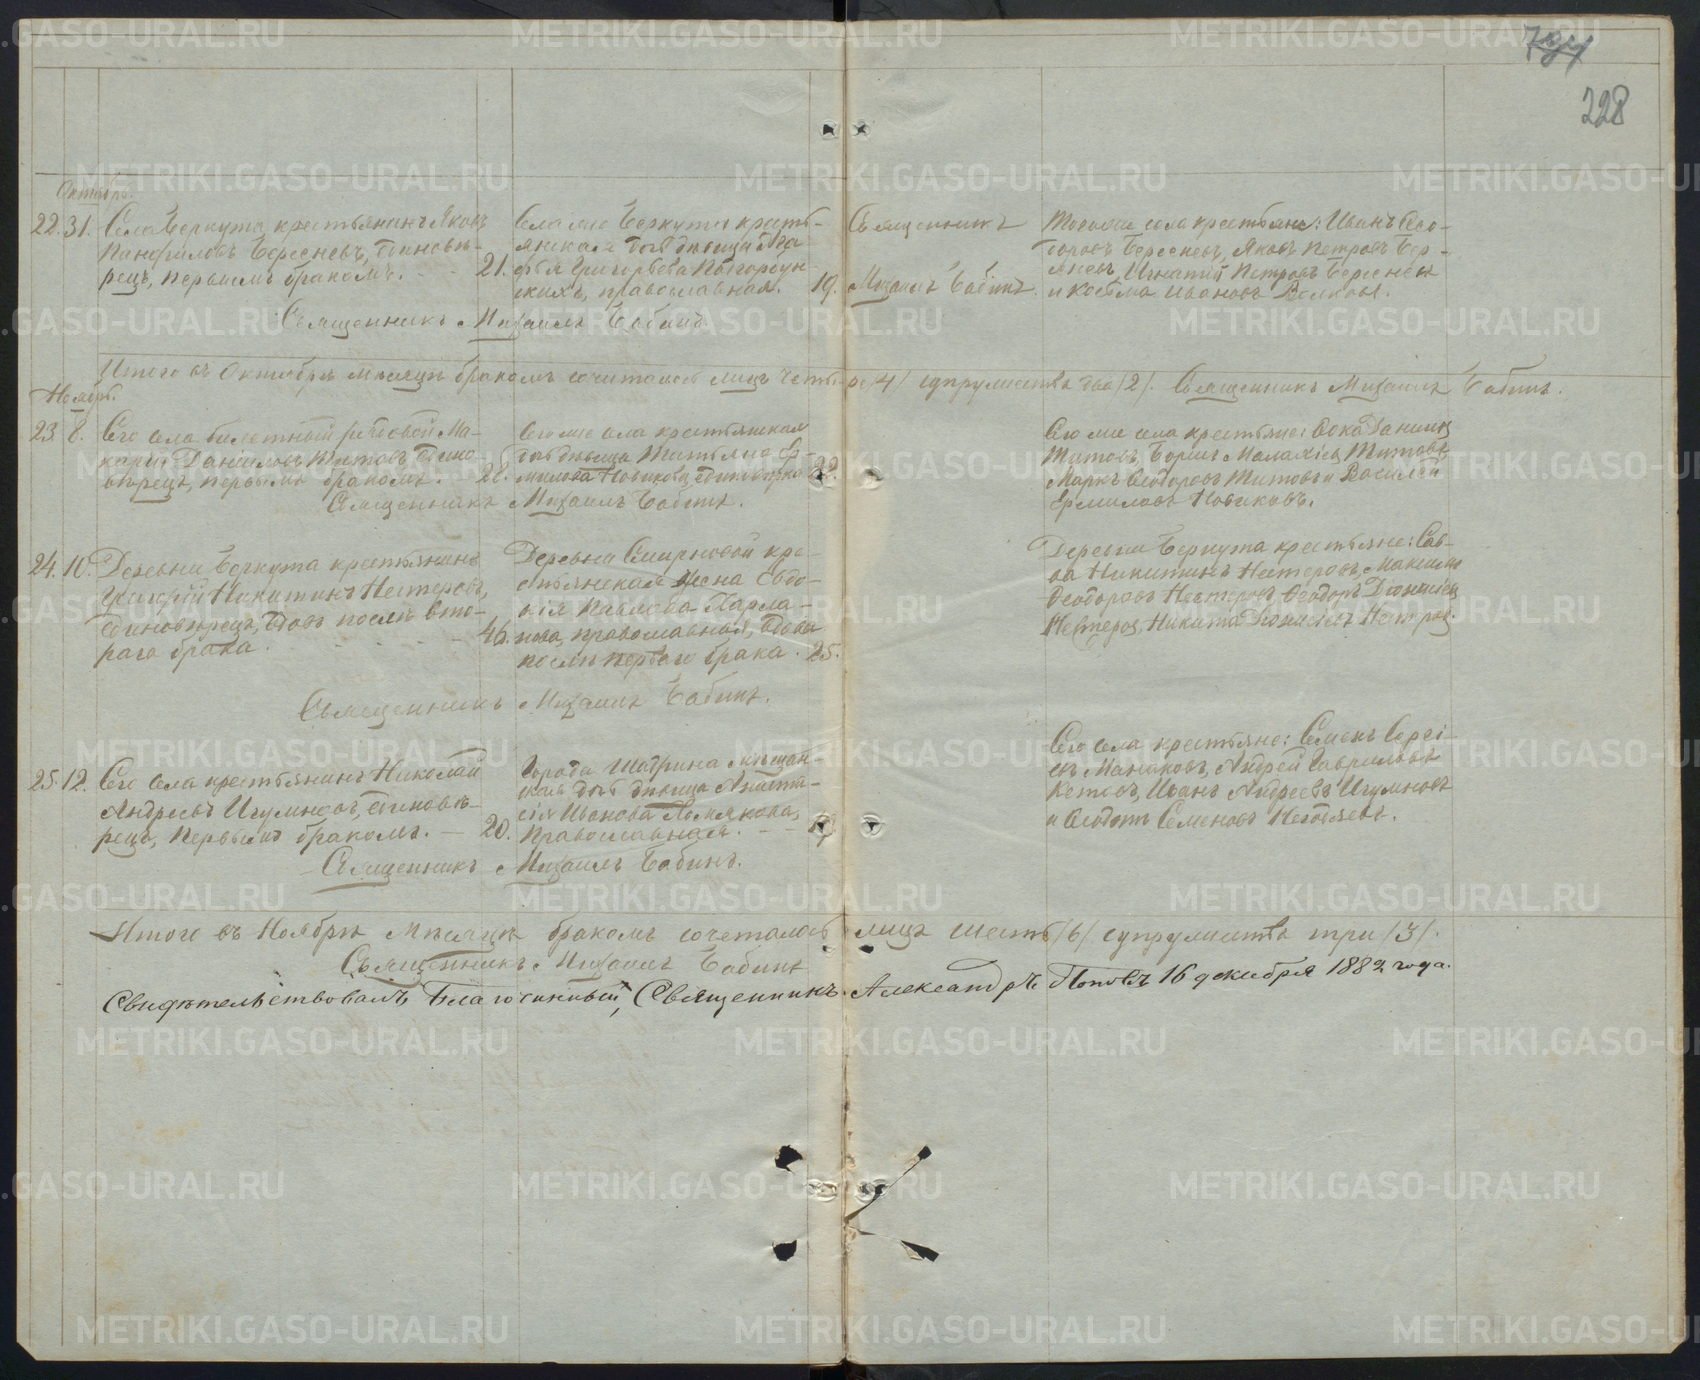 228
Октябрь.
22. 31. Села Беркута крестьянинъ Яковъ
Панфиловъ Береневъ, единовѣ-
рецъ, первымъ бракомъ. 21.
Села же Беркута кресть-
янская дочь дѣвица
Григорьева
православная. 19.
Священникъ
Михаилъ Бабинъ.
Тогоже села крестьяне: Иванъ Ѳео-
доровъ Береневъ, Яковъ Петровъ Бер-
еневъ, Игнатій Петровъ Береневъ
и Косьма Ивановъ
Священникъ Михаилъ Бабинъ
Итого въ Октябрѣ мѣсяцѣ бракомъ сочеталось лицъ четыре /4/ супружества два /2/. Священникъ Михаилъ Бабинъ.
Ноябрь.
23. 8. Сего села билетный рядовой Ма-
карій Даніиловъ Титовъ, едино-
вѣрецъ, первымъ бракомъ. 28.
Сего же села крестьянская
дочь дѣвица Татьяна Ер-
милова Новикова, единовѣрка 22.
Сего же села крестьяне: Фока Даніиловъ
Титовъ, Борисъ Малахіевъ Титовъ,
Маркъ Ѳеодоровъ Титовъ и Василій
Ермиловъ Новиковъ.
Священникъ Михаилъ Бабинъ.
24. 10. Деревни Беркута крестьянинъ
Григорій Никитинъ Нестеровъ,
единовѣрецъ, вдовъ послѣ вто-
раго брака. 46.
Деревни Смирновой кре-
стьянская жена Евдо-
кія Павлова Харла-
нова, православная, вдова
послѣ перваго брака. 25.
Деревни Беркута крестьяне: Сав-
ва Никитинъ Нестеровъ, Максимъ
Ѳеодоровъ Нестеровъ, Ѳеодоръ Діонисіевъ
Нестеровъ, Никита Діонисіевъ Нестеровъ.
Священникъ Михаилъ Бабинъ.
25. 12. Сего села крестьянинъ Николай
Андреевъ Игумновъ, единовѣ-
рецъ, первымъ бракомъ. 20.
Города Шадрина мѣщан-
ская дочь дѣвица Анаста-
сія Иванова Хомякова,
православная.
Сего села крестьяне: Семенъ Сергі-
евъ Манаковъ, Андрей Гавриловъ
Кетовъ, Иванъ Андреевъ Игумновъ
и Ѳеодотъ Семеновъ
Священникъ Михаилъ Бабинъ.
Итого въ Ноябрѣ мѣсяцѣ бракомъ сочеталось лицъ шесть /6/ супружества три /3/.
Священникъ Михаилъ Бабинъ
Свидѣтельствовалъ Благочинный, Священникъ Александръ Поповъ 16 декабря 1882 года.
METRIKI.GASO-URAL.RU